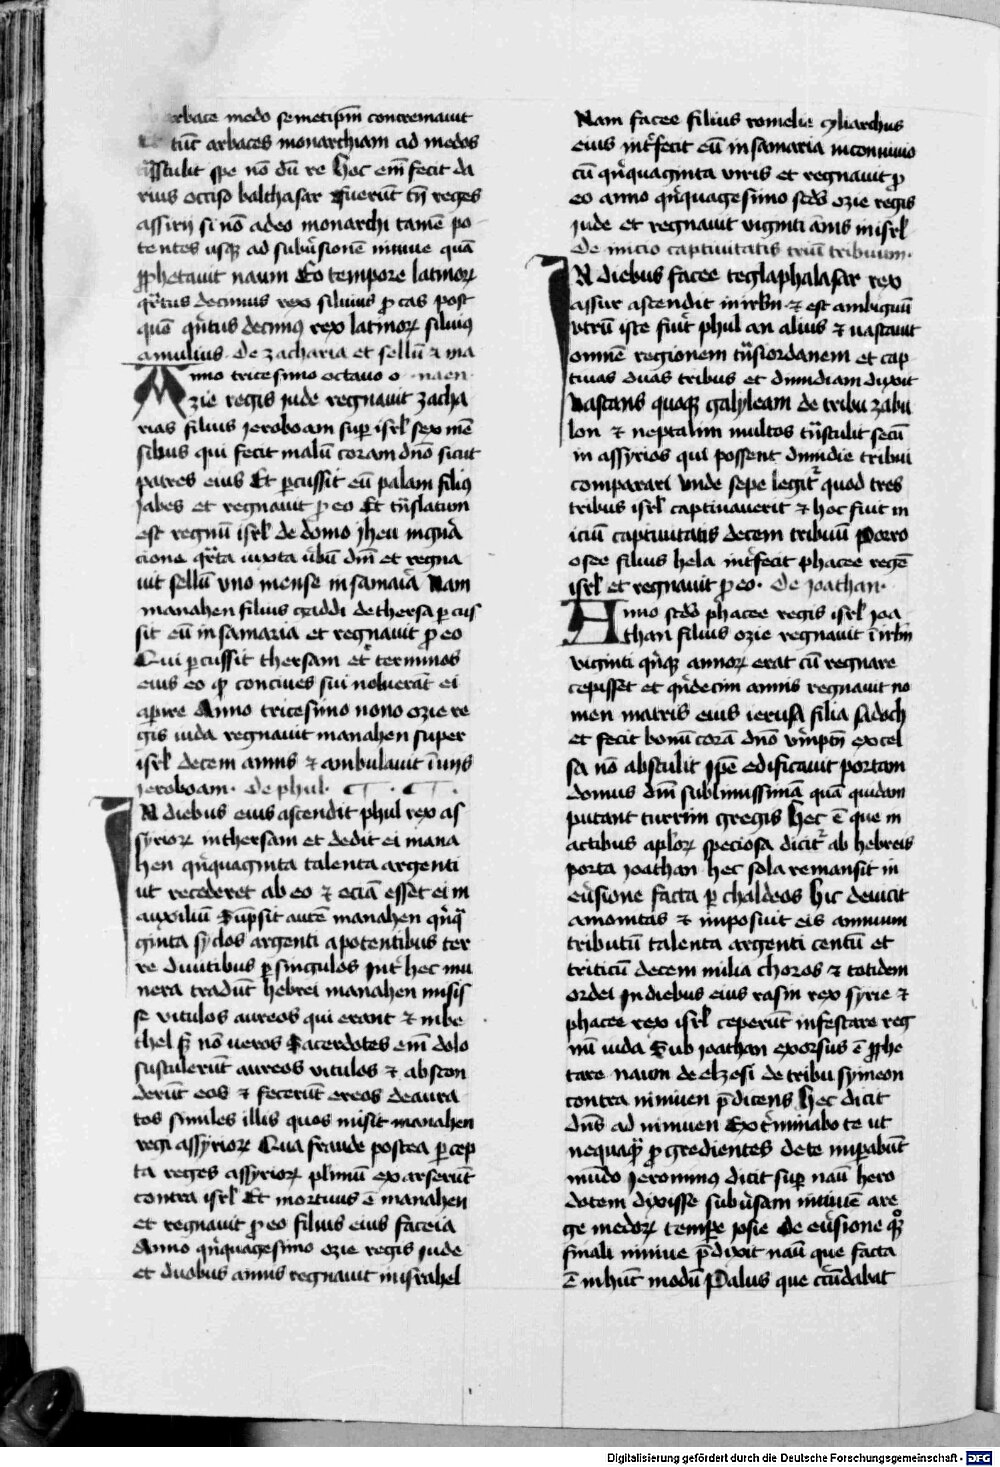 arbace medo semetip̄m concremauit
tūc arbaces monarchiam ad medos
t̄nstulit spe nō dū re Hoc em̄ fecit da
rius occiso balthasar Fuerūt tn̄ reges
assirij si nō adeo monarchi tamē po
tentes usq̨ ad subūsionē niniue quā
ꝓphetauit naum Eo tempore latinoꝝ
qr̄tus decimus rex siluius ꝓcas post
quē qn̄tus decimꝰ rex latinoꝝ siluiꝰ
amulius · De zacharia et sellū ⁊ ma
Anno tricesimo octauo o · naen ·
zie regis iude regnauit zacha
rias filius Jeroboam suꝑ isrl̄ sex mē
sibus qui fecit malū coram dn̄o sicut
patres eius Et ꝑcussit eū palam filiꝰ
Jabes et regnauit ꝓ eo Et t̄nslatum
est regnū isrl̄ de domo Jheu in gn̄a
cione qr̄ta iuxta ūbū dn̄i et regna
uit sellū vno mense in samaīa Nam
manahen filius gaddi de thersa ꝑcus
sit eū in samaria et regnauit ꝓ eo
Qui ꝑcussit thersam et terminos
eius eo ꝙ conciues sui noluerāt ei
aꝑire Anno tricesimo nono ozie re
gis iuda regnauit manahen super
isrl̄ decem annis ⁊ ambulauit ī uijs
Jeroboam · de phul ·
IN diebus eius ascendit phul rex as
syrioꝝ in thersam et dedit ei mana
hen qn̄quaginta talenta argenti
ut recederet ab eo ⁊ eciā esset ei in
auxiliū Sūpsit autē manahen qn̄q̄
ginta syclos argenti a potentibus ter
re diuitibus ꝑ singulos Int̄ hec mu
nera tradūt hebrei manahen misis
se vitulos aureos qui erant ⁊ in be
thel sꝫ nō ueros Sacerdotes em̄ dolo
sustulerūt aureos vitulos ⁊ abscon
derūt eos ⁊ fecerūt ereos deaura
tos similes illis quos misit manahen
regi assyrioꝝ Qua fraude postea ꝑcep
ta reges assyrioꝝ pl̄imū exarserūt
contra isrl̄ Et mortuus ē manahen
et regnauit ꝓ eo filius eius faceia
Anno qn̄quagesimo ozie regis iude
et duobus annis regnauit in israhel
Nam facee filius romelie cyliarchus
eius int̄fecit eū in samaria in conuiuio
cū qn̄quaginta viris et regnauit ꝓ
eo anno qn̄quagesimo scd̄o ozie regis
iude et regnauit viginti ānis in isrl̄
De inicio captiuitatis triū tribuum ·
IN diebus facee teglaphalasar rex
assur ascendit in irl̄m ⁊ est ambiguū
vtrū iste fuit̄ phul an alius ⁊ uastauit
omnē regionem t̄nsiordanem et cap
tiuas duas tribus et dimidiam duxit
Uastans quoq̨ galyleam de tribu zabu
lon ⁊ neptalim multos t̄nstulit secū
in assyrios qui possent dimidie tribui
comparari Unde sepe legit̄ quod tres
tribus isrl̄ captiuauerit ⁊ hoc fuit in
iciū captiuitatis decem tribuū Porro
osee filius hela int̄fecit phacee regē
isrl̄ et regnauit ꝓ eo · De Joathan ·
Anno scd̄o phacee regis isrl̄ Joa
than filius ozie regnauit ī irl̄m
viginti qn̄q̨ annoꝝ erat cū regnare
cepisset et qn̄decim annis regnauit no
men matris eius ierusa filia sadoch
et fecit bonū corā dn̄o Uer̄ptn̄ excel
sa nō abstulit Ip̄e edificauit portam
domus dn̄i sublimissimā quā quidam
putant turrim gregis Hec ē que in
actibus ap̄loꝝ speciosa dicit̄ ab hebreis
porta Joathan hec sola remansit in
eūsione facta ꝑ chaldeos Hic deuicit
amonitas ⁊ imposuit eis annuum
tributū talenta argenti centū et
triticū decem milia choros ⁊ totidem
ordei In diebus eius rasin rex syrie ⁊
phacee rex isrl̄ ceperūt infestare reg
nū iuda Sub Joathan exorsus ē ꝓphe
tare naum de elzesi de tribu symeon
contra niniuen p̄dicens Hec dicit
dn̄s ad niniuen Ext̄minabo te ut
nequaq̄ ꝓgredientes de te imꝑabūt
mūdo Jeronimus dicit suꝑ naū hero
dotem dixisse subūsam niniuē are
ge medoꝝ tempore josie De eūsione qͦꝫ
finali niniue p̄dixit naū que facta
ē in hūc modū Palus que ccūdabat
Digitalisierung gefördert durch die Deutsche Forschungsgemeinschaft - DFG